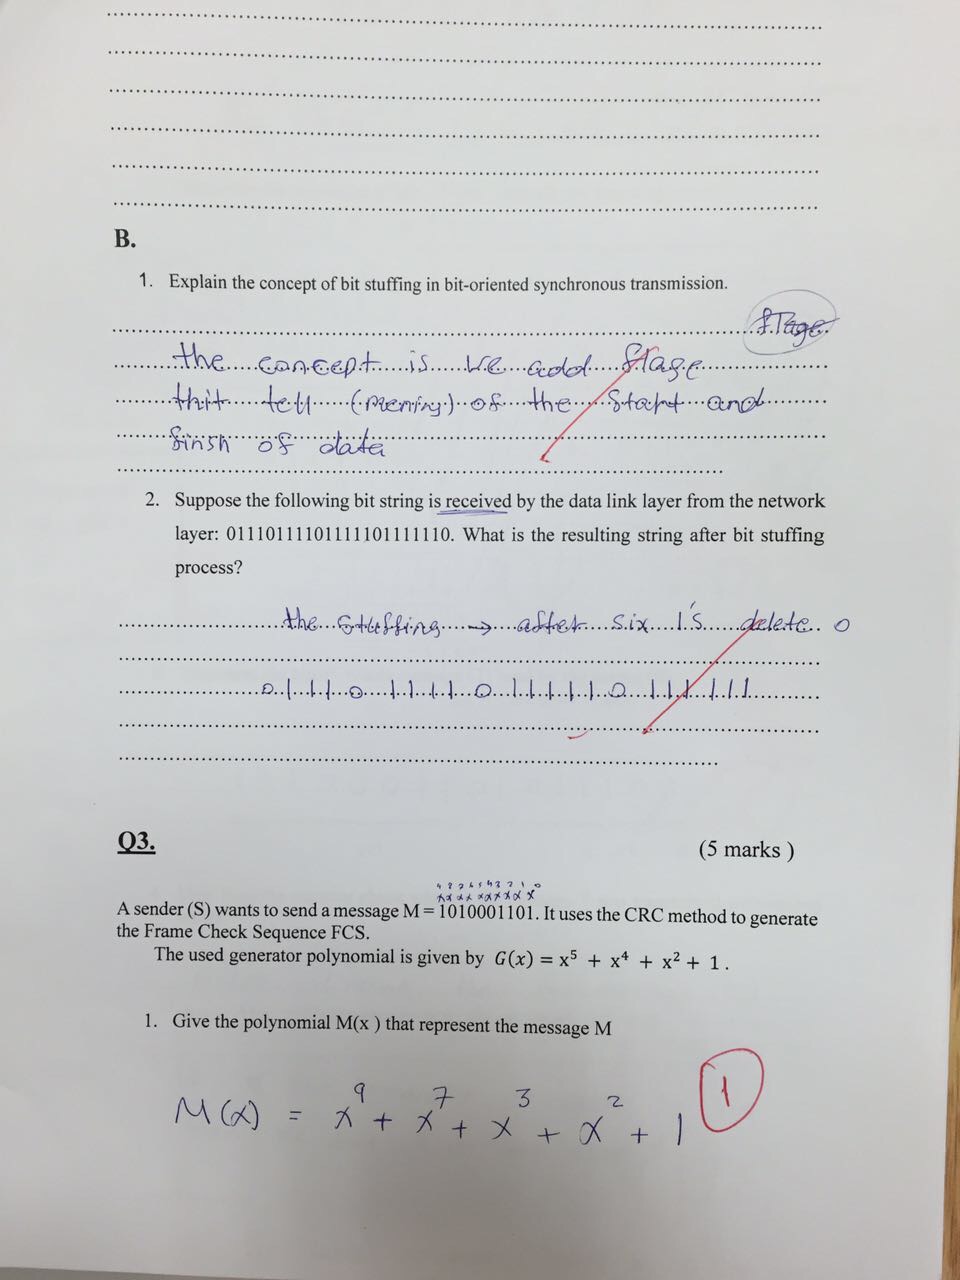 B.
1. Explain the concept of bit stuffing in bit-oriented synchronous transmission.
the concept is we add flage
thit tell (mening) of the start and
finsh of data
2. Suppose the following bit string is received by the data link layer from the network
layer: 01110111101111101111110. What is the resulting string after bit stuffing
process?
the stuffing → after six 1's delete 0
0111011110111110111111
Q3.
(5 marks )
A sender (S) wants to send a message M = 1010001101. It uses the CRC method to generate
the Frame Check Sequence FCS.
The used generator polynomial is given by G(x) = x⁵ + x⁴ + x² + 1 .
1. Give the polynomial M(x ) that represent the message M
M(x) = x⁹ + x⁷ + x³ + x² + 1
1